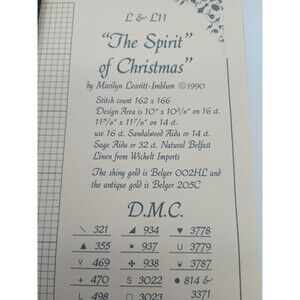 L & L11
"The Spirit"
of Christmas"
by Marilyn Leavitt-Imblum ©1990
Stitch count 162 x 166
Design Area is 10" x 10³/₈" on 16 ct.
11⁵/₈" x 11⁷/₈" on 14 ct.
use 16 ct. Sandalwood Aida or 14 ct.
Sage Aida or 32 ct. Natural Belfast
Linen from Wichelt Imports
The shiny gold is Belger 002HL and
the antique gold is Belger 205C
D.M.C.
321 934 ♥ 3778
355 937 U 3779
V 469 938 3787
+ 470 S 3022 ● 814 &
L 498 □ 3023 3371